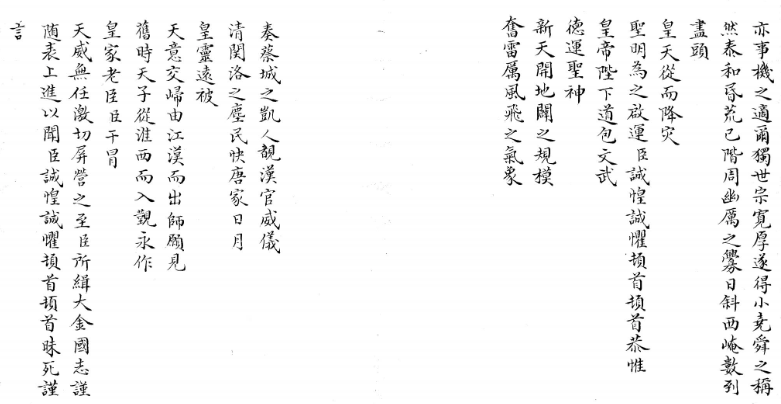 亦事機之適爾獨世宗寬厚遂得小堯舜之稱
然泰和昏荒已階周幽厲之釁日斜西崦數列
盡頭
皇天從而降災
聖明為之啟運臣誠惶誠懼頓首頓首恭惟
皇帝陛下道包文武
德運聖神
新天開地闢之規模
奮雷厲風飛之氣象
奏蔡城之凱人覩漢官威儀
清関洛之塵民快唐家日月
皇靈遠被
天意交歸由江漢而出師願見
舊時天子從淮西而入覲永作
皇家老臣臣干冒
天威無任激切屏營之至臣所緝大金國志謹
随表上進以聞臣誠惶誠懼頓首頓首昧死謹
言